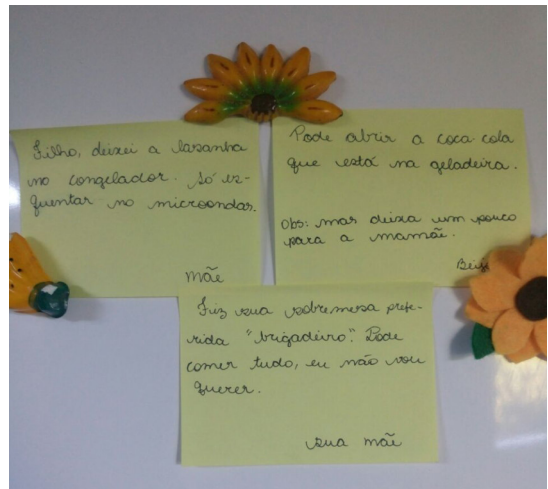 Filho, deixei a lasanha
no congelador. Só es-
quentar no microondas.
mãe
Pode abrir a coca-cola
que está na geladeira.
Obs: mas deixa um pouco
para a mamãe.
Fiz sua sobremesa prefe-
rida "brigadeiro". Pode
comer tudo, eu não vou
querer.
sua mãe